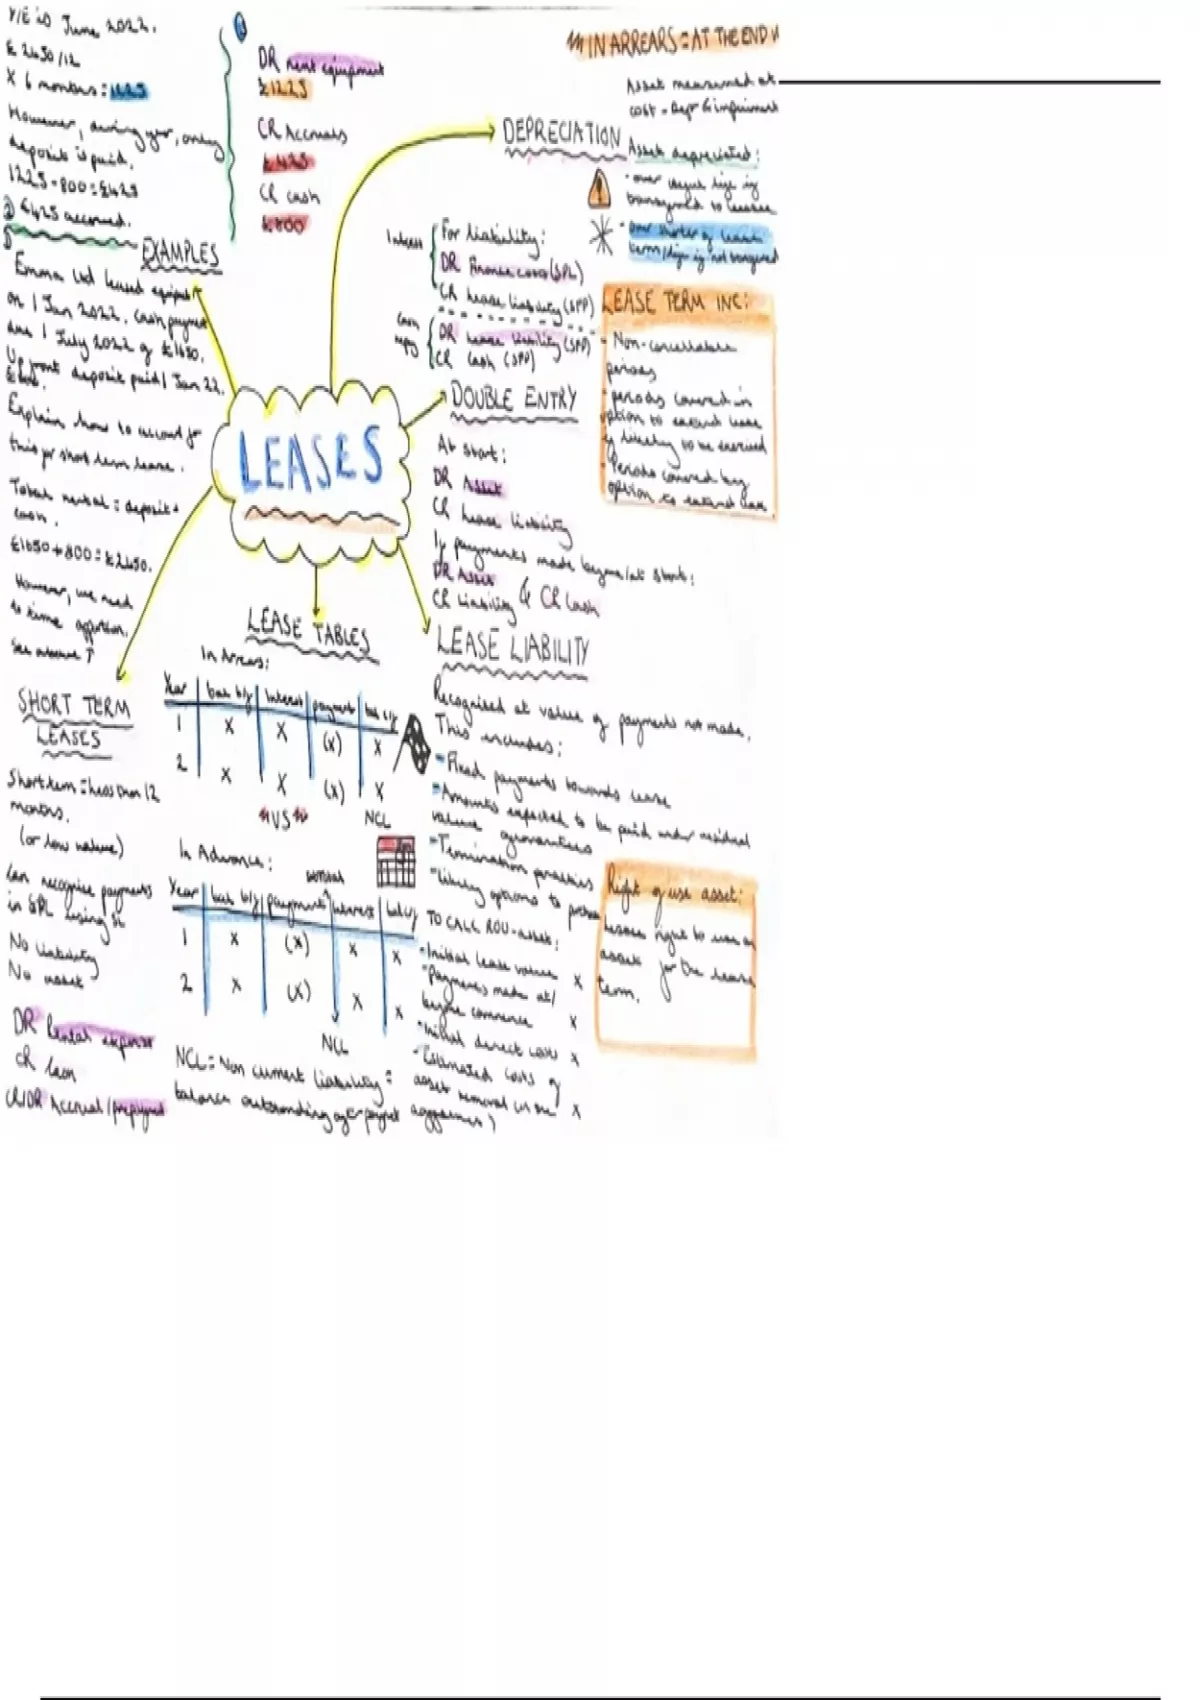 Y/E 30 June 2022.
£2450/12
X 6 months = 1225
However, during year, only
deposit is paid.
1225-800=£425
② £425 accrued.
DR rent equipment
£1225
CR Accruals
£425
CR cash
£800
IN ARREARS = AT THE END
DEPRECIATION
Asset measured at
cost - depr & impairment
Asset depreciated:
- over useful life if
transferred to lessee
- over shorter of lease
term/life if not transferred
EXAMPLES
①
Emma Ltd leased equipment
on 1 Jan 2022. Cash payment
due 1 July 2022 of £1650.
Up front deposit paid 1 Jan 22.
£800.
Explain how to account for
this for short term lease.
Total rental = deposit +
cash.
£1650+800=£2450.
However, we need
to time apportion.
See above ↑
Interest
For liability:
DR Finance costs (SPL)
CR Lease liability (SFP)
Cash
DR Lease liability (SFP)
CR Cash (SFP)
LEASE TERM INC:
- Non-cancellable
periods
- periods covered in
option to extend lease
if likely to be exercised
- Periods covered by
option to extend lease
LEASES
DOUBLE ENTRY
At start:
DR Asset
CR Lease liability
If payments made before/at start:
DR Asset
CR Liability & CR Cash
LEASE TABLES
In Arrears:
Year bal b/f interest payment bal c/f
1 X X (X) X
2 X X (X) X
VS NCL
In Advance:
Year bal b/f payment interest bal c/f
1 X (X) X X
2 X (X) X X
NCL
NCL = Non current liability =
balance outstanding after payment
SHORT TERM
LEASES
Short term = less than 12
months.
(or low value)
Can recognise payments
in SPL using SL
No liability
No asset
DR Rental expense
CR
CR/DR Accrual/prepayment
LEASE LIABILITY
Recognised at value of payments not made.
This includes:
- Fixed payments towards lease
- Amounts expected to be paid under residual
value guarantees
- Termination penalties
- likely options to purchase
TO CALC ROU-asset:
- Initial lease value X
- Payments made at/
before commence X
- Initial direct costs X
- Estimated costs of
asset removal X
Right of use asset:
lessee right to use an
asset for the lease
term.